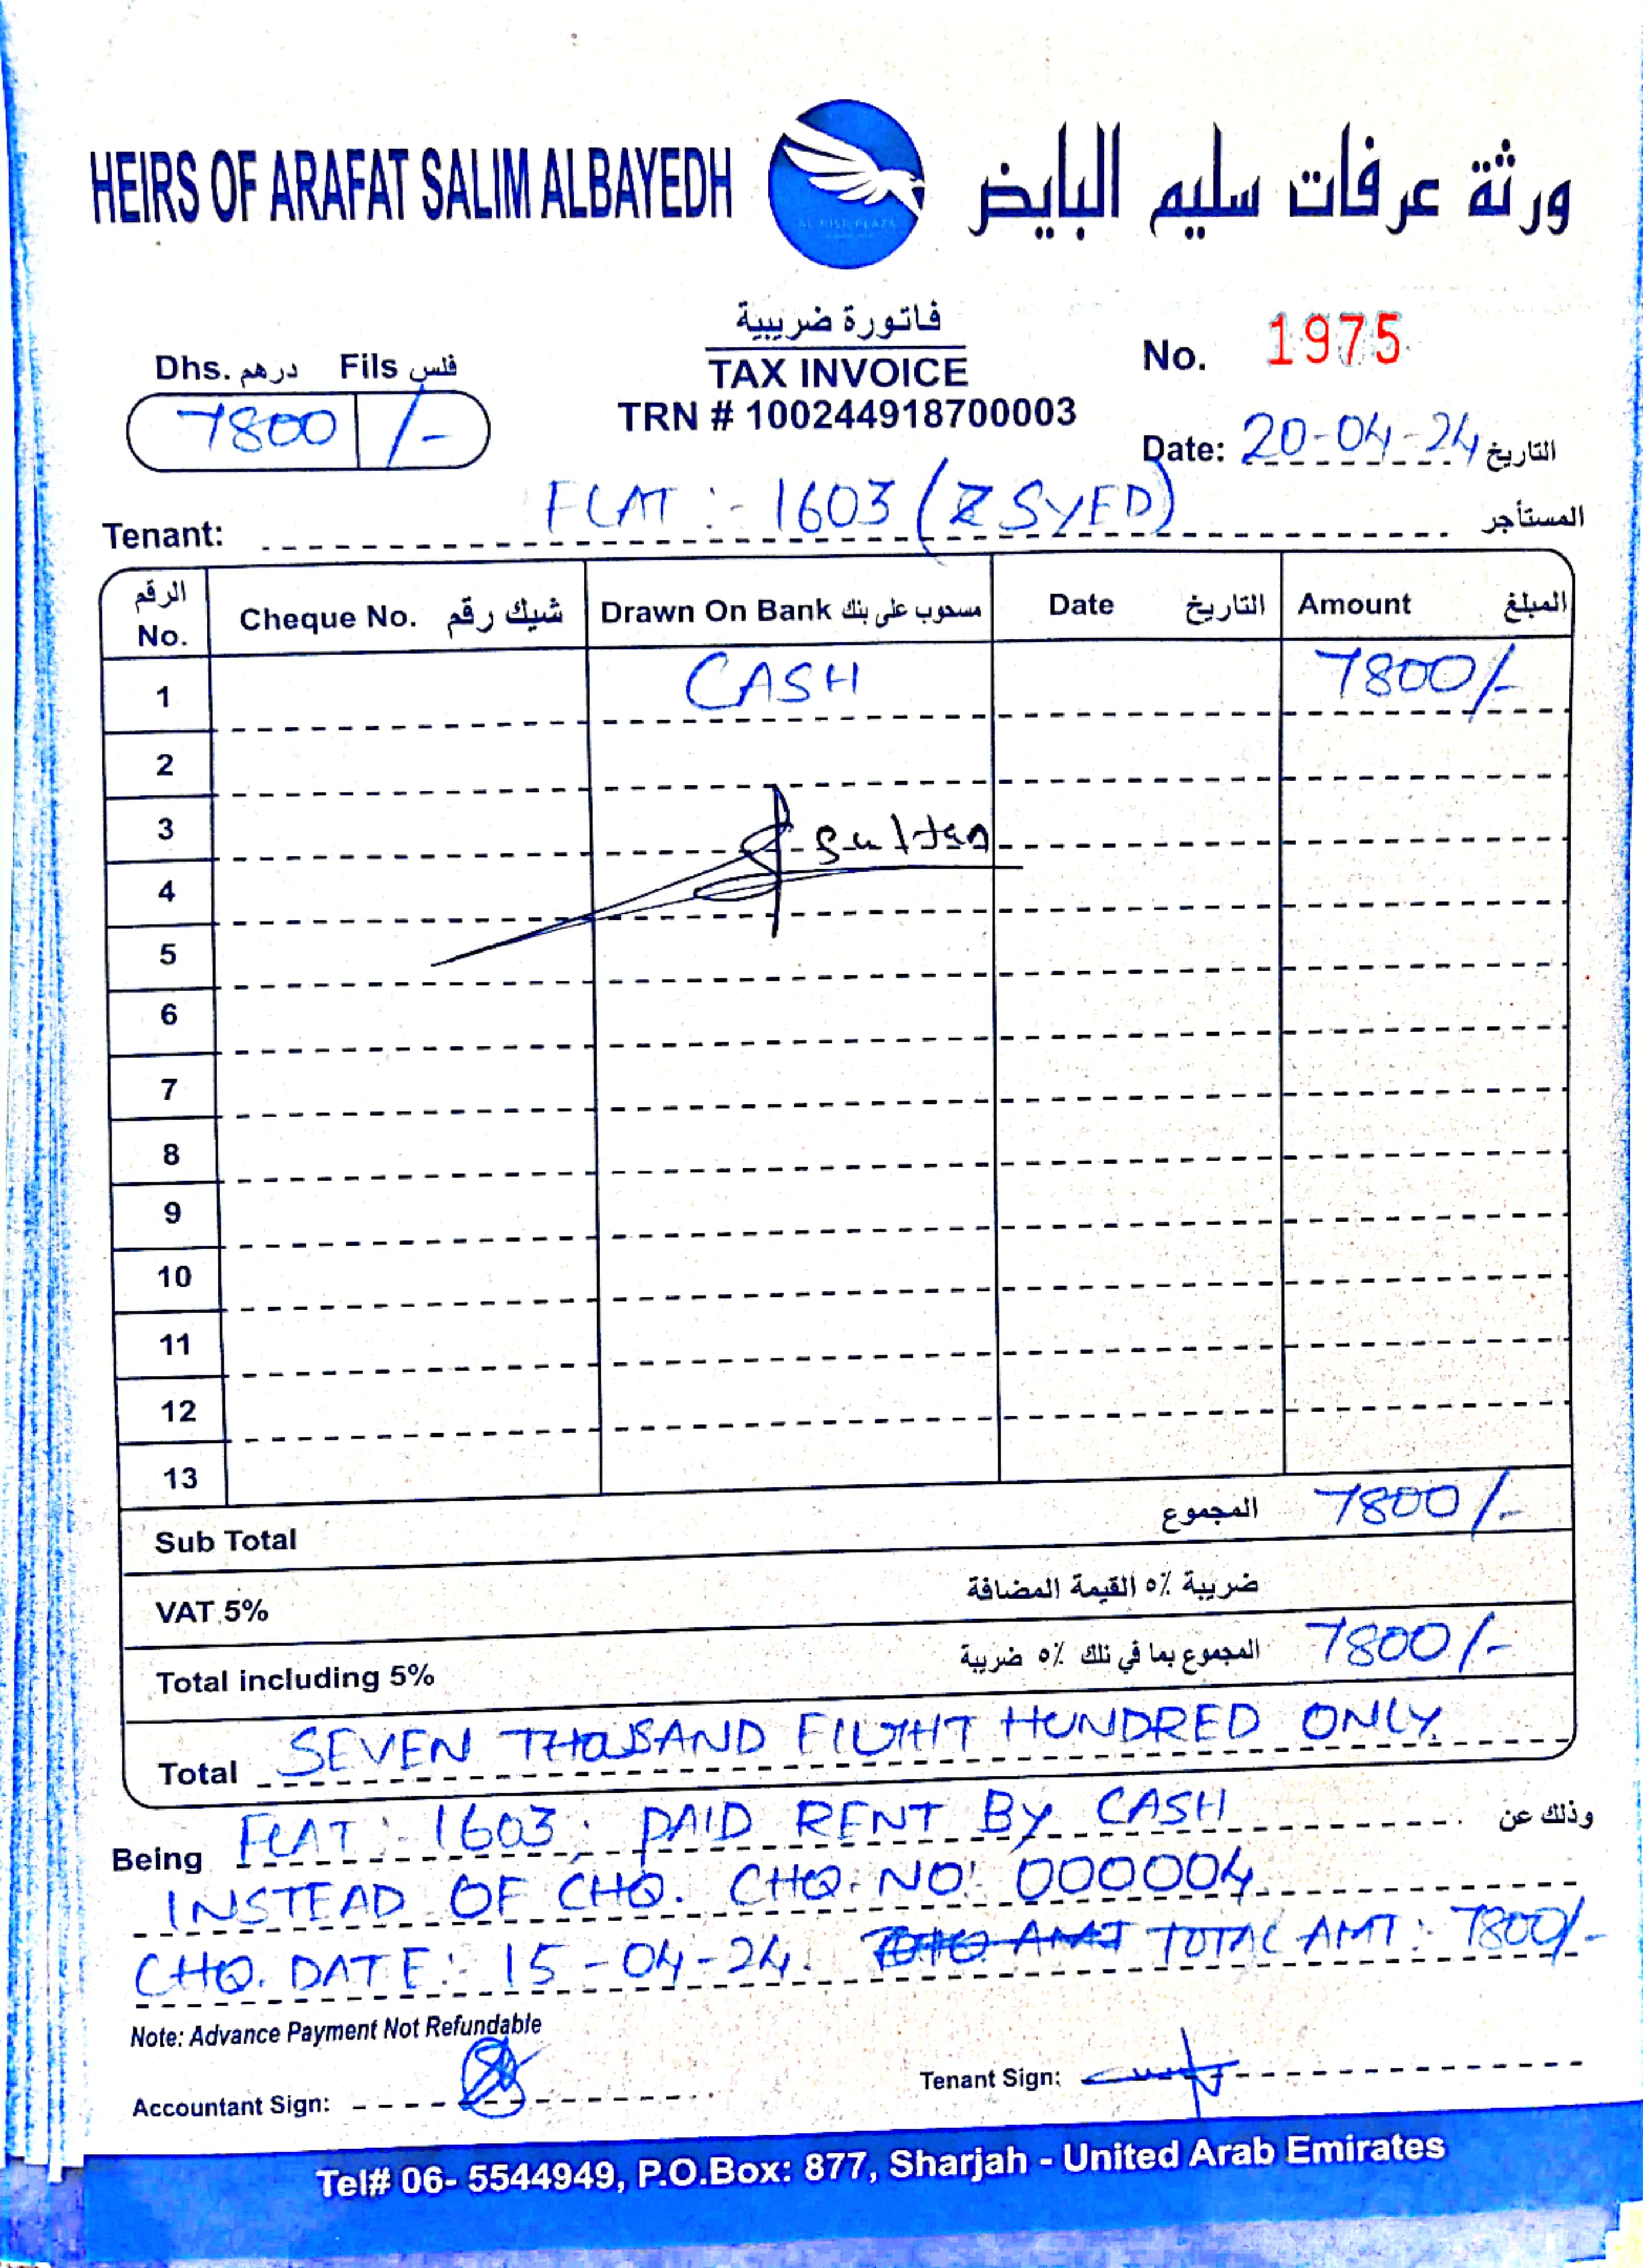 HEIRS OF ARAFAT SALIM ALBAYEDH
ورثة عرفات سليم البايض
AL HISN PLAZA
فاتورة ضريبية
TAX INVOICE
TRN # 100244918700003
Dhs. درهم Fils فلس
7800 /-
No. 1975
Date: 20-04-24 التاريخ
Tenant: FLAT :- 1603 (Z SYED) المستأجر
الرقم No. Cheque No. شيك رقم Drawn On Bank مسحوب على بنك Date التاريخ Amount المبلغ
1 CASH 7800/-
2
3 Sultan
4
5
6
7
8
9
10
11
12
13
Sub Total المجموع 7800/-
VAT 5% ضريبة ٥٪ القيمة المضافة
Total including 5% المجموع بما في ذلك ٥٪ ضريبة 7800/-
Total SEVEN THOUSAND EIGHT HUNDRED ONLY.
Being FLAT :- 1603; PAID RENT BY CASH وذلك عن
INSTEAD OF CHQ. CHQ. NO: 000004
CHQ. DATE: 15-04-24. TOTAL AMT: 7800/-
Note: Advance Payment Not Refundable
Accountant Sign: Tenant Sign:
Tel# 06- 5544949, P.O.Box: 877, Sharjah - United Arab Emirates